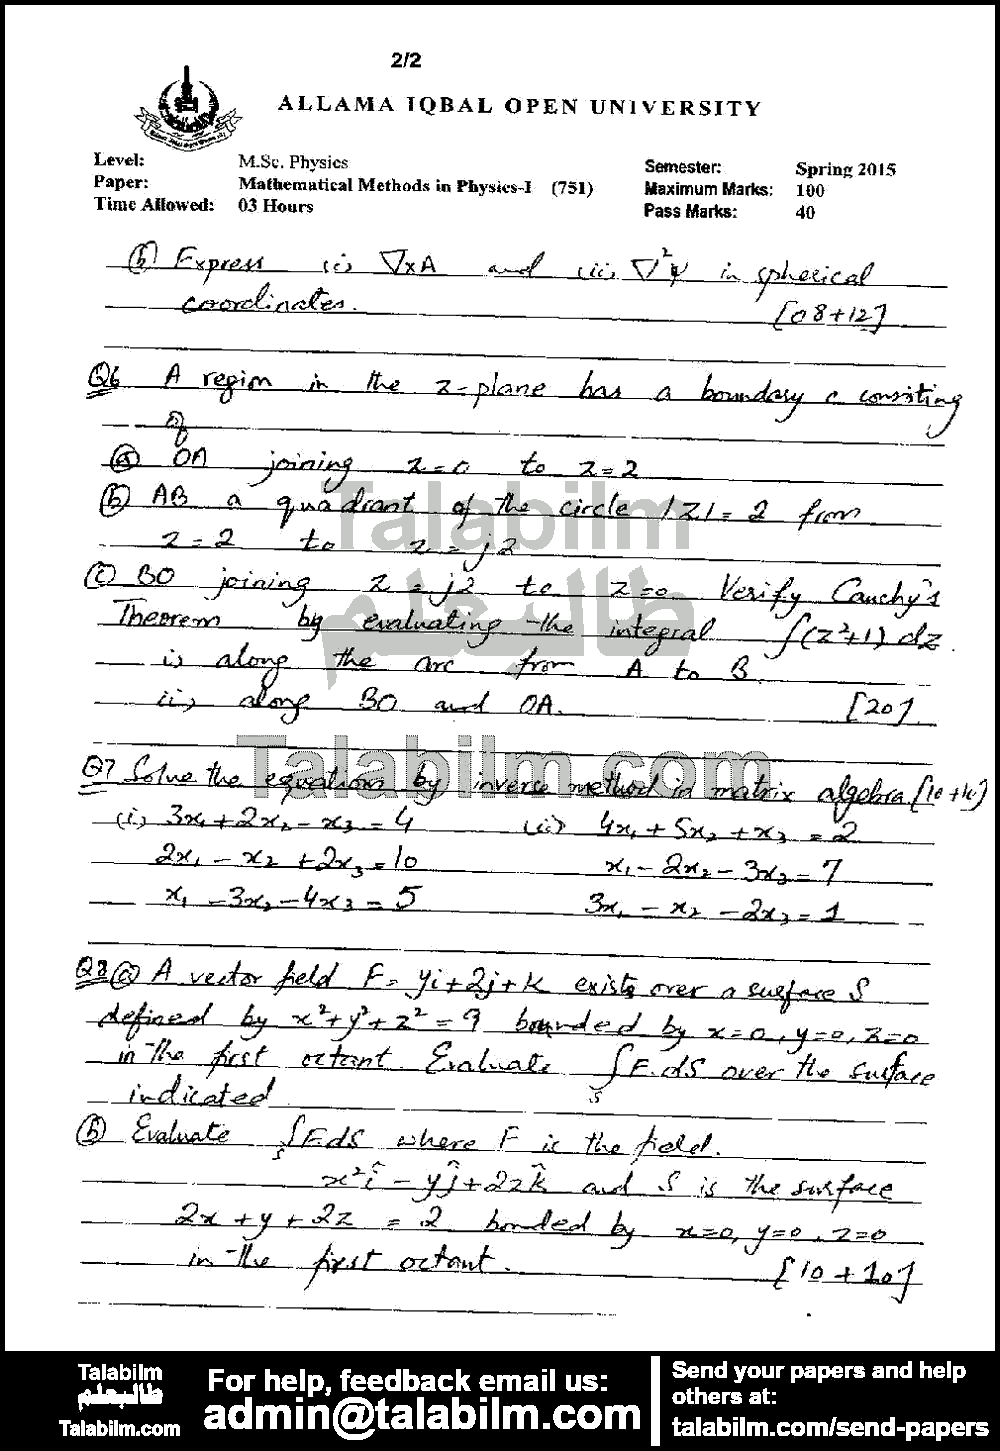 2/2
ALLAMA IQBAL OPEN UNIVERSITY
Level: M.Sc. Physics
Paper: Mathematical Methods in Physics-I (751)
Time Allowed: 03 Hours
Semester: Spring 2015
Maximum Marks: 100
Pass Marks: 40
(b) Express (i) ∇×A and (ii) ∇²ψ in spherical
coordinates. [08+12]
Q6 A region in the z-plane has a boundary c consisting
of
(a) OA joining z=0 to z=2
(b) AB a quadrant of the circle |z|=2 from
z=2 to z=j2
(c) BO joining z=j2 to z=0 Verify Cauchy's
Theorem by evaluating the integral ∫(z²+1) dz
i) along the arc from A to B
(ii) along BO and OA. [20]
Q7 Solve the equations by inverse method in matrix algebra [10+10]
(i) 3x₁+2x₂-x₃=4 (ii) 4x₁+5x₂+x₃=2
2x₁-x₂+2x₃=10 x₁-2x₂-3x₃=7
x₁-3x₂-4x₃=5 3x₁-x₂-2x₃=1
Q8 (a) A vector field F=yi+2j+k exists over a surface S
defined by x²+y²+z²=9 bounded by x=0, y=0, z=0
in the first octant. Evaluate ∫F.dS over the surface
S
indicated
(b) Evaluate ∫F.dS where F is the field.
S
x²î-yĵ+2zk̂ and S is the surface
2x+y+2z=2 bonded by x=0, y=0, z=0
in the first octant. [10+10]
Talabilm
طالبعلم
Talabilm.com
Talabilm
طالبعلم
Talabilm.com
For help, feedback email us:
admin@talabilm.com
Send your papers and help
others at:
talabilm.com/send-papers